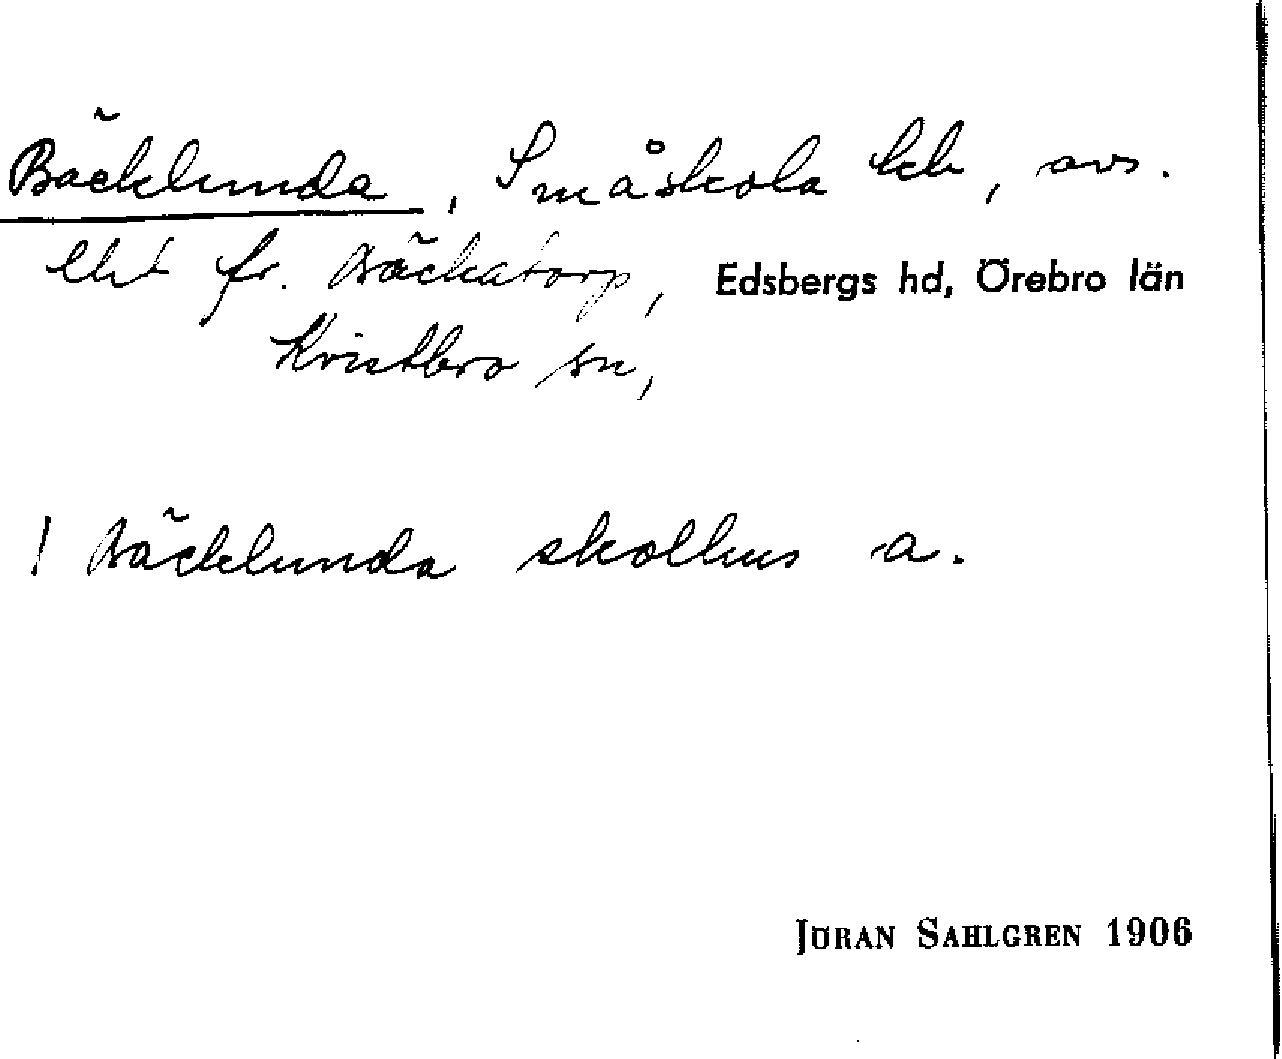 Bäcklunda, Småskola lht, avs.
lht fr. Bäckatorp, Edsbergs hd, Örebro län
Kvistbro sn,
! Bäcklunda skolhus a.
JÖRAN SAHLGREN 1906